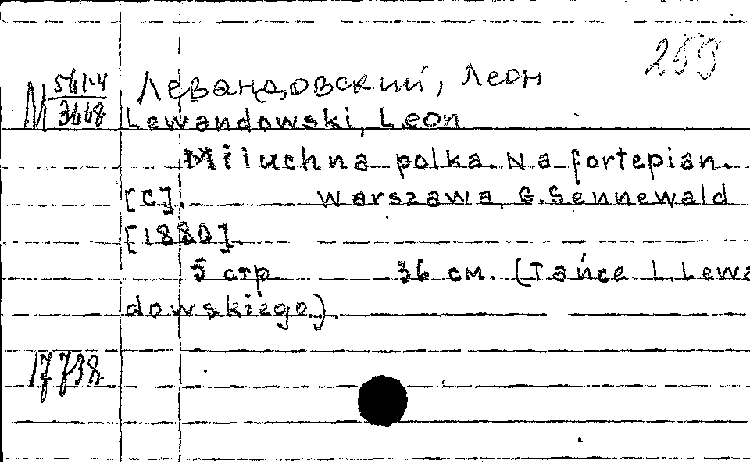 259
М 561-4
3668
Левандовский, Леон
Lewandowski, Leon
Miluchna polka. Na fortepian.
[C]. Warszawa, G. Sennewald
[1880].
5 стр 36 см. (Tańce L. Lewa
dowskiego).
17738